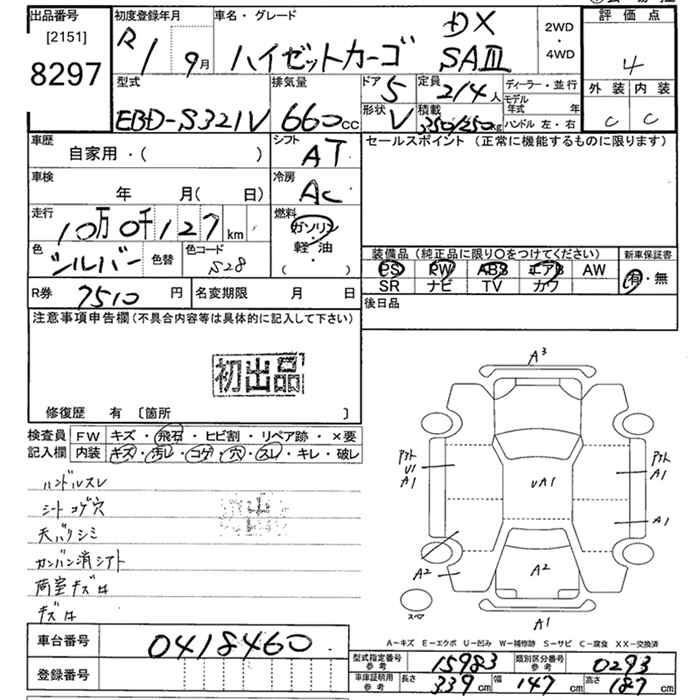 出品番号
[2151]
8297
初度登録年月
R1 9月
車名・グレード
ハイゼットカーゴ
DX
SAⅢ
2WD
・
4WD
評価点
4
外装 内装
C C
型式
EBD-S321V
排気量
660cc
ドア 5
形状 V
定員 2/4人
積載 350/250kg
ディーラー・並行
モデル年式 年
ハンドル 左・右
車歴
自家用・( )
シフト AT
車検
年 月( 日)
冷房 AC
走行
10万0千127km
燃料
ガソリン
軽・油
( )
色
シルバー
色替
色コード
S28
R券 7510円
名変期限 月 日
セールスポイント(正常に機能するものに限ります)
装備品(純正品に限り○をつけてください)
PS PW ABS エアB AW
SR ナビ TV カワ
新車保証書
有・無
後日品
注意事項申告欄(不具合内容等は具体的に記入して下さい)
初出品
修復歴 有 〔箇所 〕
検査員 FW キズ・飛石・ヒビ割・リペア跡・×要
記入欄 内装 キズ・汚レ・コゲ・穴・スレ・キレ・破レ
ハンドルスレ
シートコゲ穴
天バリシミ
カンバン消シアト
荷室キズ凹
キズ凹
A3
アクト
U1
A1
UA1
アクト
A1
A1
A2
A2
スペア
A1
A−キズ E−エクボ U−凹み W−補修跡 S−サビ C−腐食 XX−交換済
車台番号 0418460
登録番号
型式指定番号 参考 15983
類別区分番号 参考 0293
車庫証明用 参考 長さ 339cm 幅 147cm 高さ 187cm